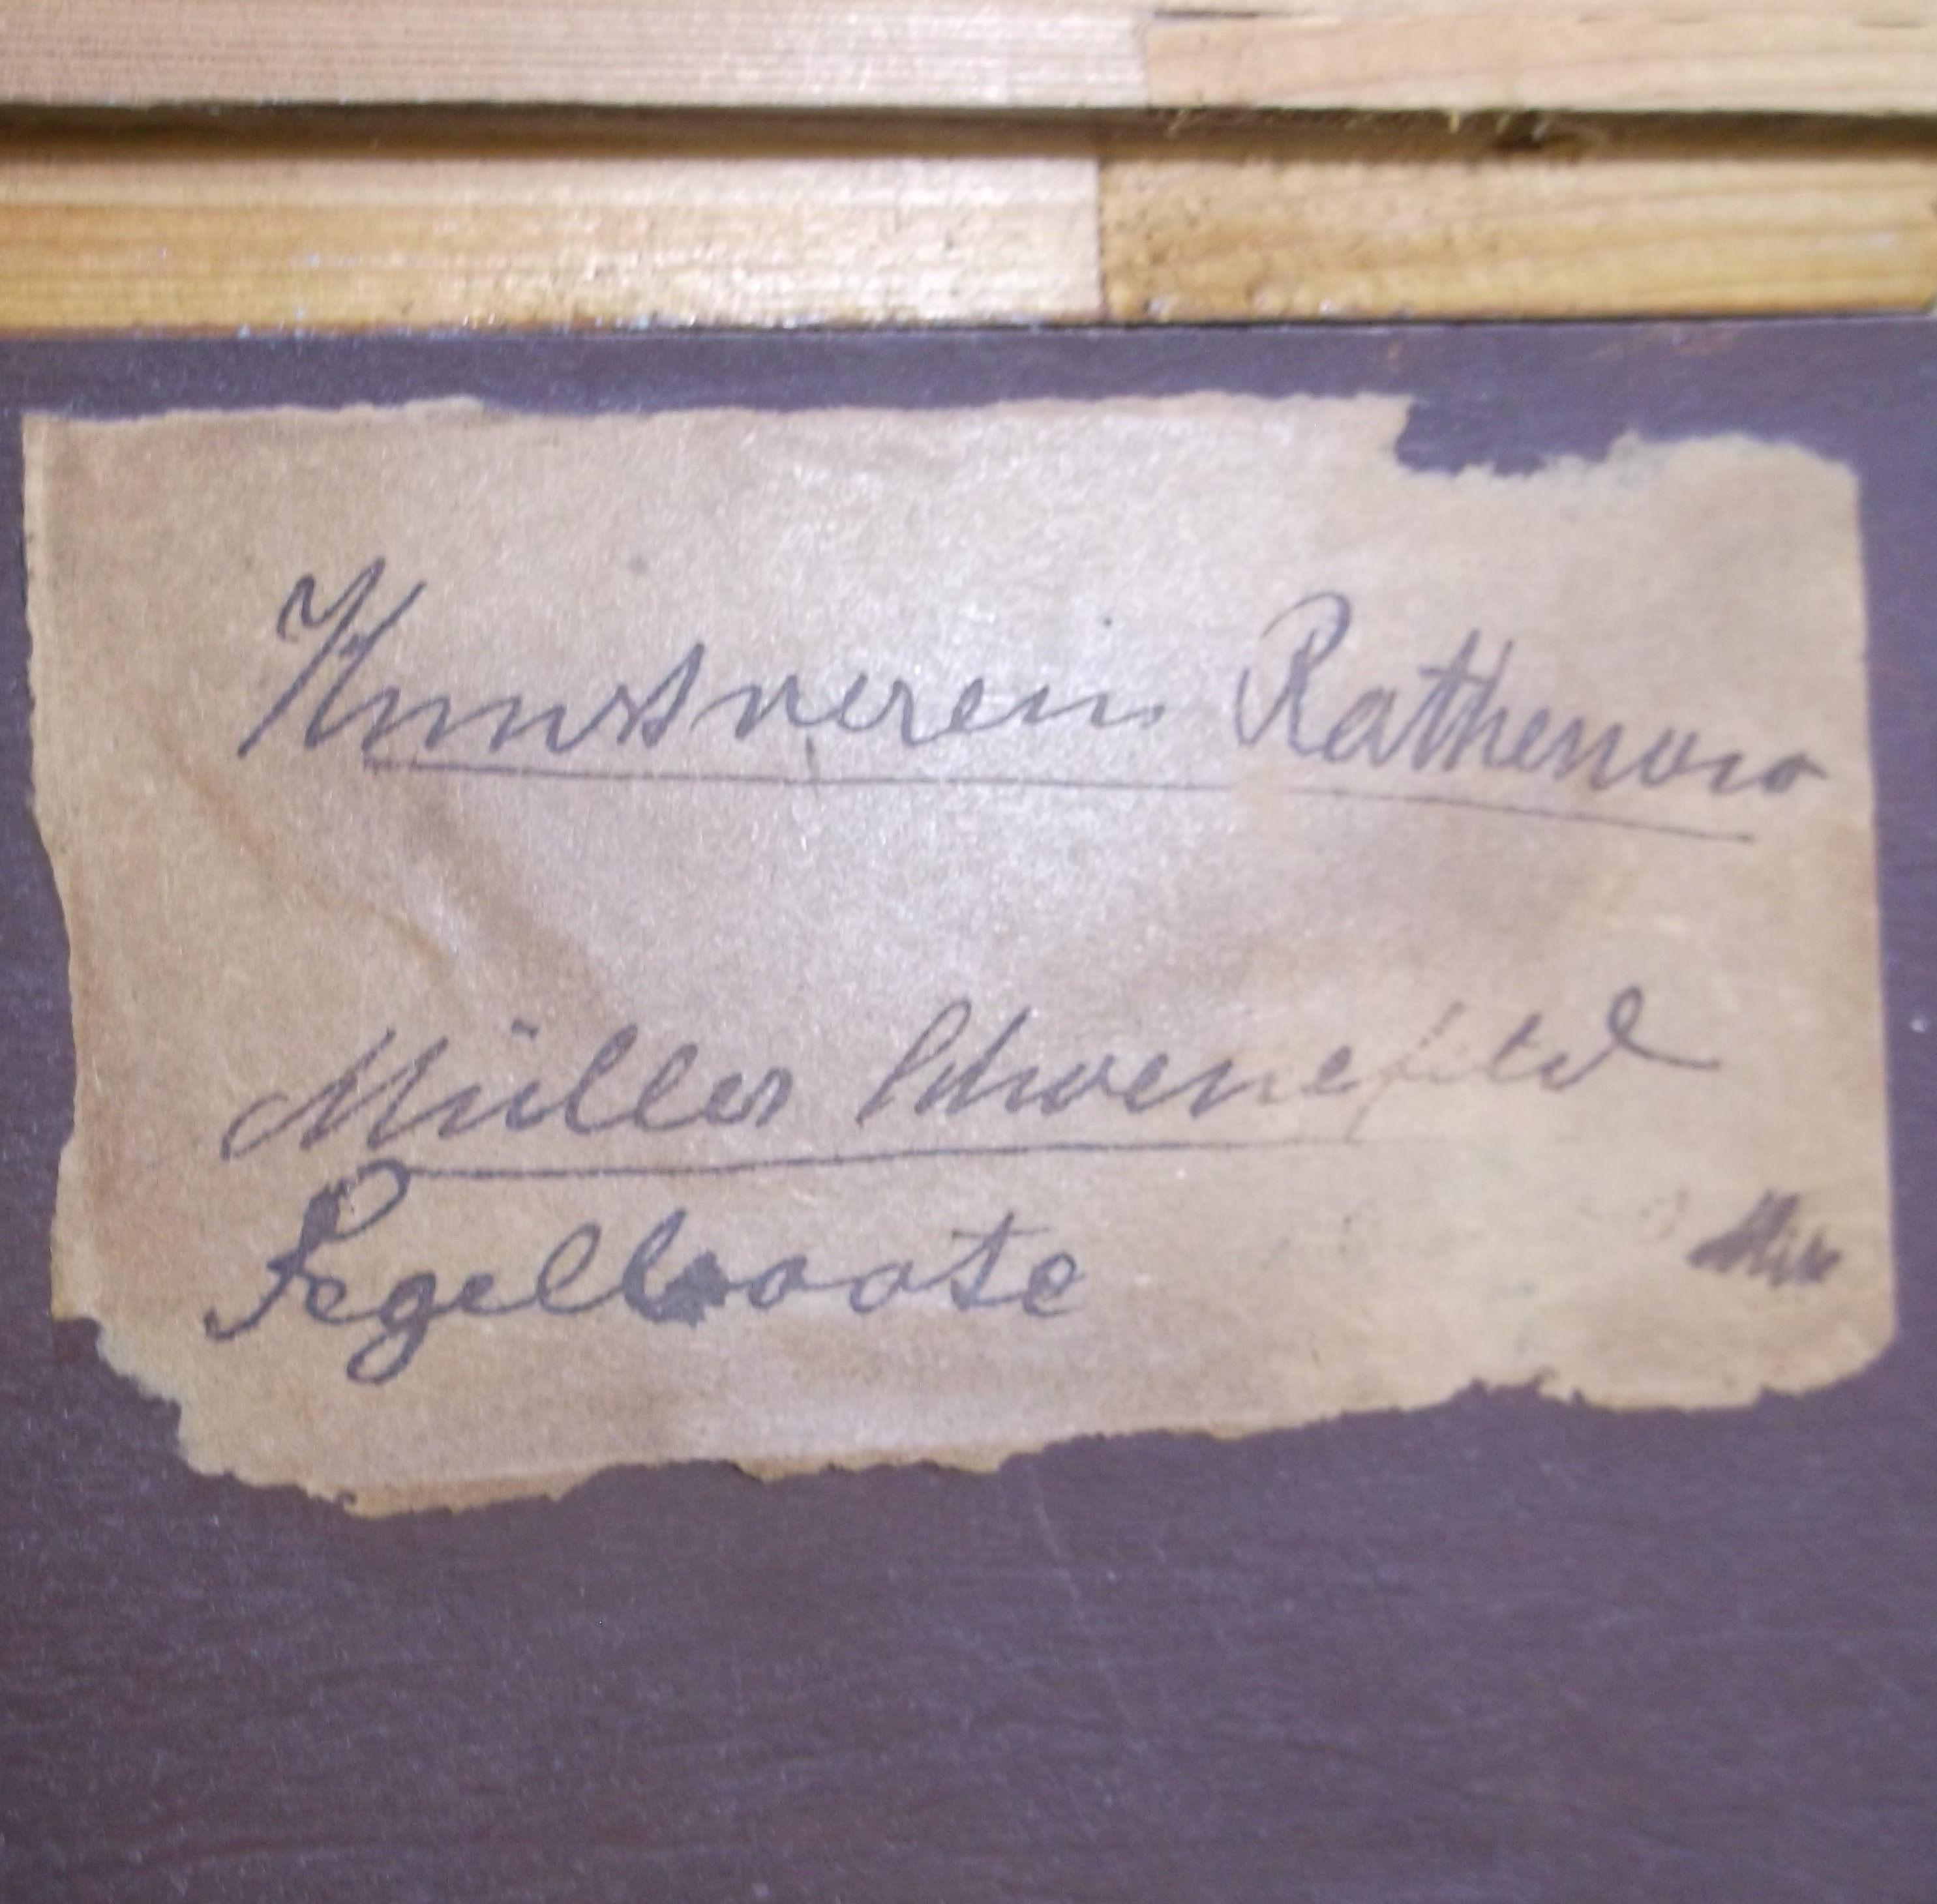 Kunstverein Rathenow
Müller Schoenefeld
Segelboote